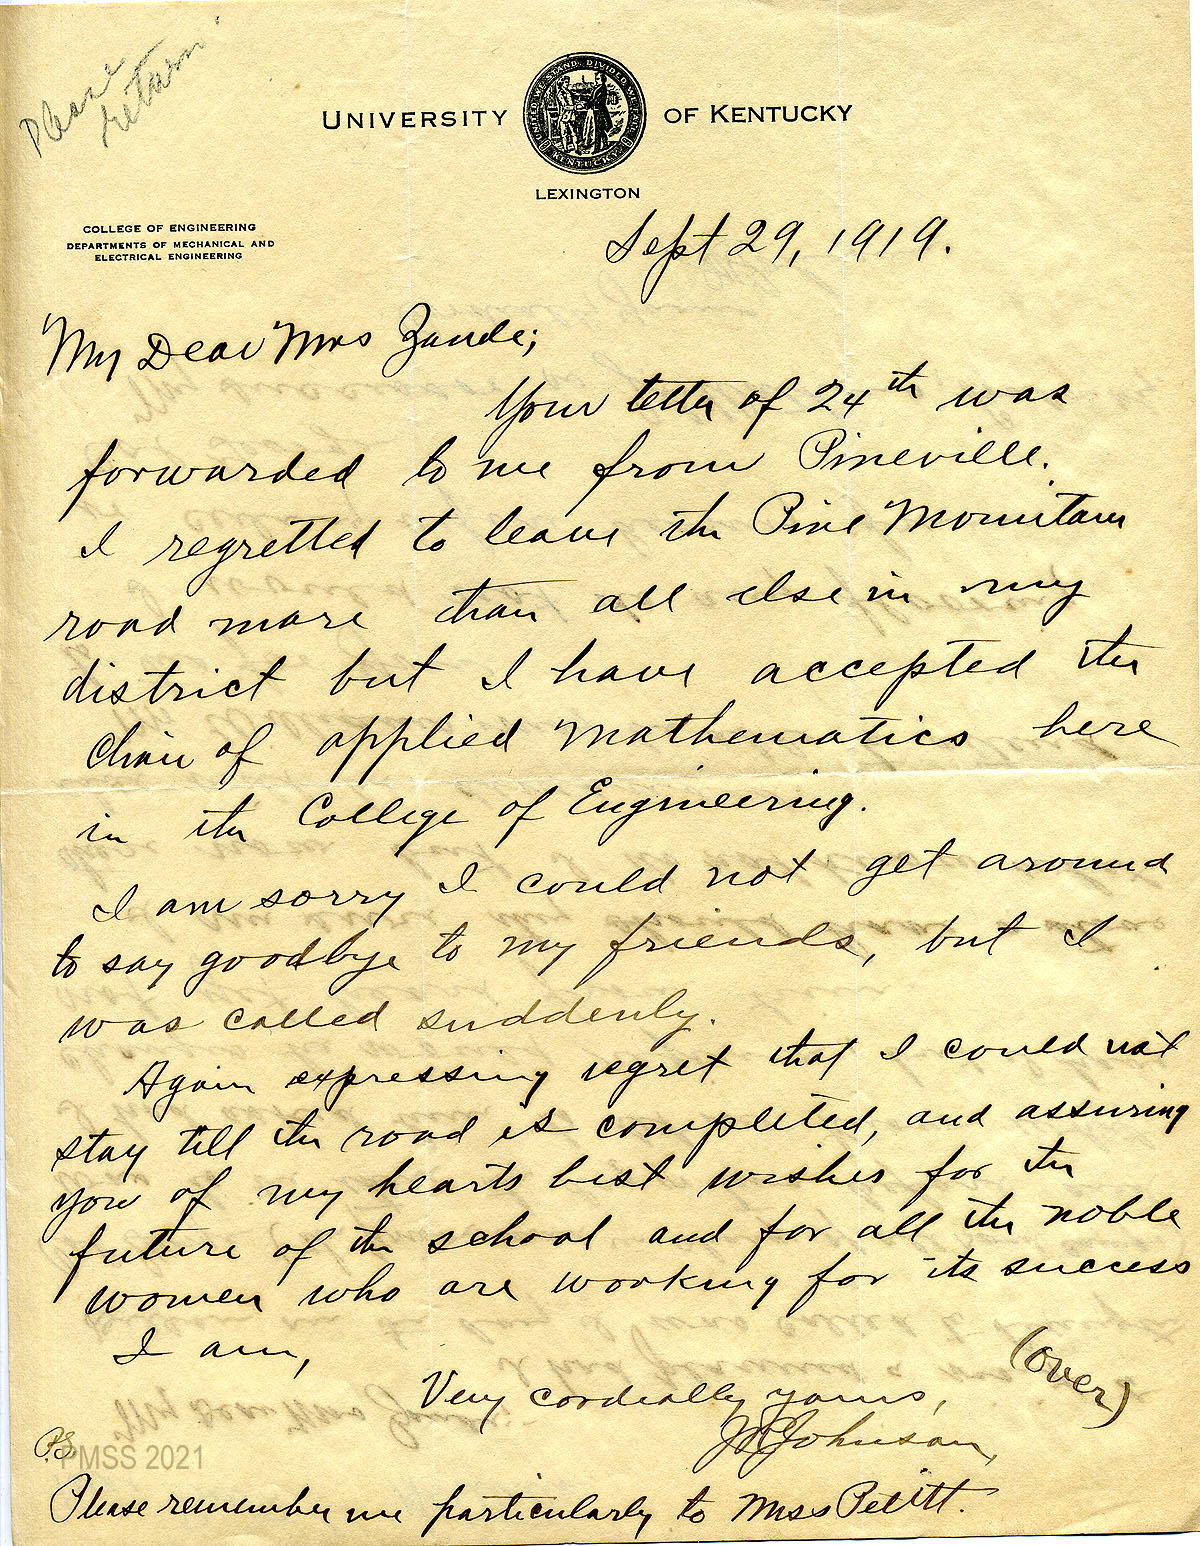 Please
return
UNIVERSITY OF KENTUCKY
UNITED WE STAND, DIVIDED WE FALL
KENTUCKY
LEXINGTON
COLLEGE OF ENGINEERING
DEPARTMENTS OF MECHANICAL AND
ELECTRICAL ENGINEERING
Sept 29, 1919.
My Dear Mrs Zande;
Your letter of 24th was
forwarded to me from Pineville.
I regretted to leave the Pine Mountain
road more than all else in my
district but I have accepted the
Chair of applied Mathematics here
in the College of Engineering.
I am sorry I could not get around
to say goodbye to my friends, but I
was called suddenly.
Again expressing regret that I could not
stay till the road is completed, and assuring
you of my hearts best wishes for the
future of the school and for all the noble
women who are working for its success
I am,
Very cordially yours,
(over)
Johnson,
P.S.
PMSS 2021
Please remember me particularly to Miss Petitt.